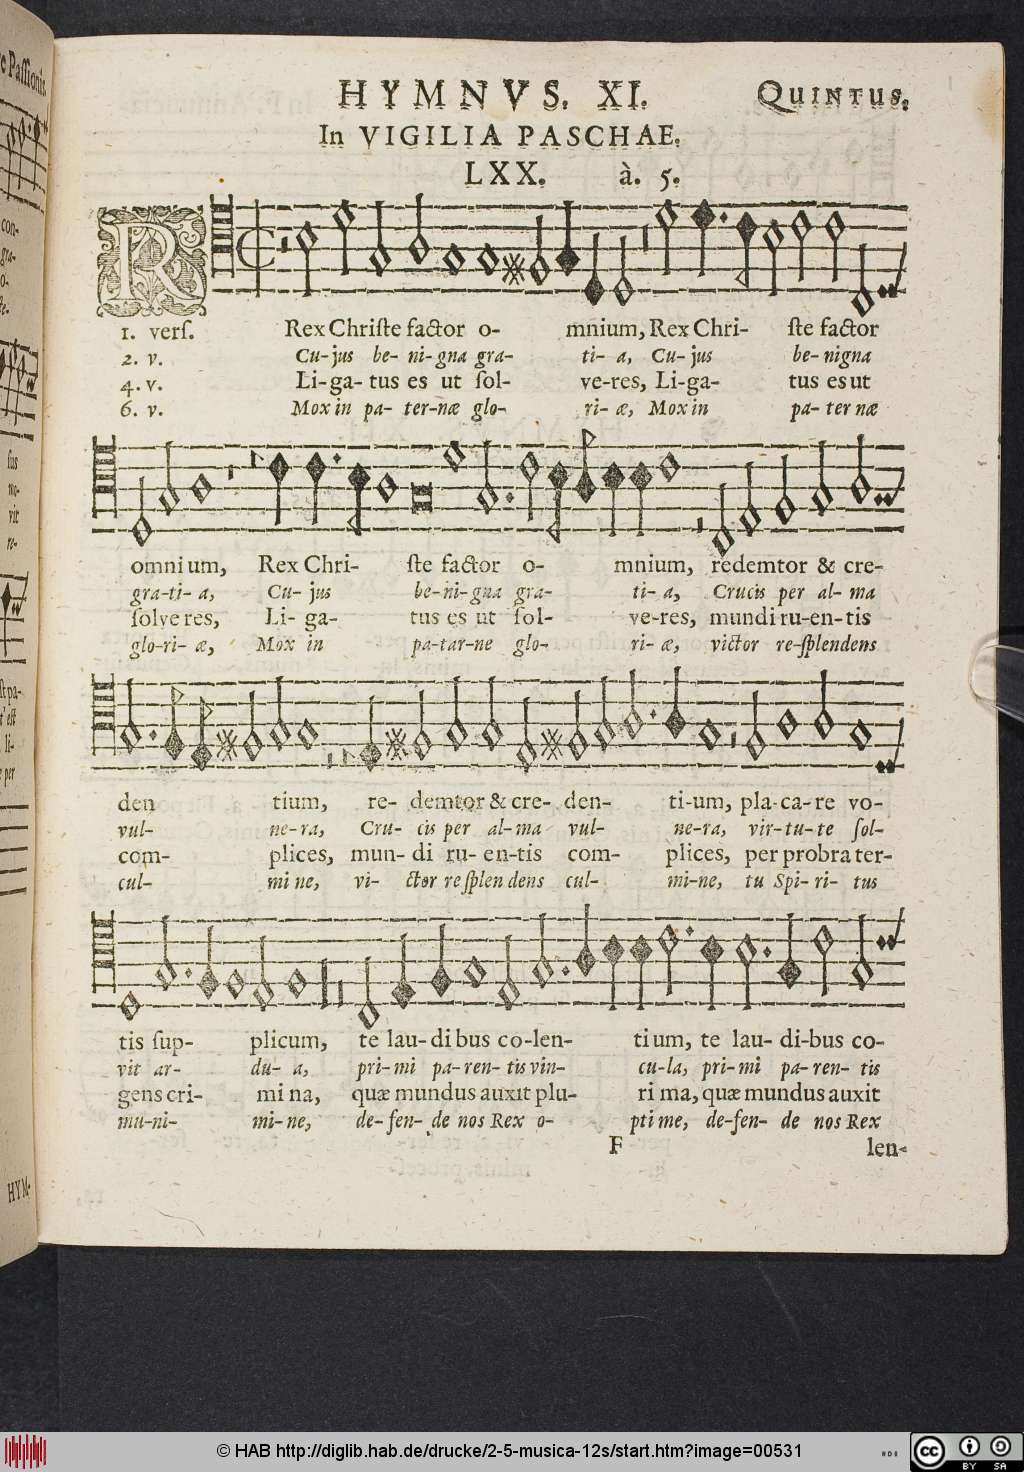 HYMNVS. XI. QUINTUS.
In VIGILIA PASCHAE.
LXX. à. 5.
R
1. verſ. Rex Chriſte factor o- mnium, Rex Chri- ſte factor
2. v. Cu-jus be-ni-gna gra- ti- a, Cu-jus be-nigna
4. v. Li-ga-tus es ut ſol- ve-res, Li-ga- tus es ut
6. v. Mox in pa-ter-næ glo- ri-æ, Mox in pa-ter næ
omnium, Rex Chri- ſte factor o- mnium, redemtor & cre-
gra-ti-a, Cu-jus be-ni-gna gra- ti-a, Crucis per al-ma
ſolve res, Li-ga- tus es ut ſol- ve-res, mundi ru-en-tis
glo-ri-æ, Mox in pa-tar-ne glo- ri-æ, victor re-ſplendens
den tium, re- demtor & cre- den- ti-um, pla-ca-re vo-
vul- ne-ra, Cru- cis per al-ma vul- ne-ra, vir-tu-te ſol-
com- plices, mun- di ru-en-tis com- plices, per probra ter-
cul- mi ne, vi- ctor re ſplen dens cul- mi-ne, tu Spi-ri-tus
tis ſup- plicum, te lau-di bus co-len- ti um, te lau-di-bus co-
vit ar- du-a, pri-mi pa-ren-tis vin- cu-la, pri-mi pa-ren-tis
gens cri- mi na, quæ mundus auxit plu- ri ma, quæ mundus auxit
mu-ni- mi-ne, de-fen-de nos Rex o- pti me, de-fen-de nos Rex
F len-
HYM-
© HAB http://diglib.hab.de/drucke/2-5-musica-12s/start.htm?image=00531
cc BY SA